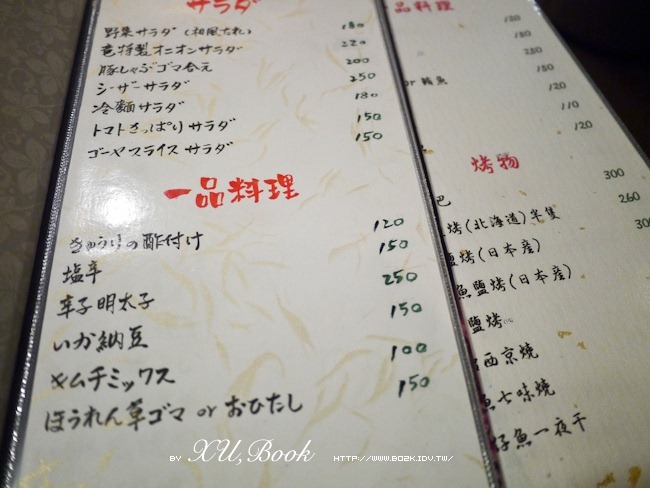 サラダ
野菜サラダ(和風だれ) 180
竜特製オニオンサラダ 220
豚しゃぶゴマ合え 200
シーザーサラダ 250
冷麺サラダ 180
トマトさっぱりサラダ 150
ゴーヤスライスサラダ 150
一品料理
きゅうりの酢付け 120
塩辛 150
辛子明太子 250
いか納豆 150
キムチミックス 100
ほうれん草ゴマ or おひたし 150
品料理
120
180
or 鮪魚 180
120
110
120
烤物
巴 300
烤(北海道)半隻 260
鹽烤(日本産) 300
魚鹽烤(日本産)
鹽烤
西京燒
魚七味燒
好魚一夜干
BY XU,Book HTTP://WWW.BO2K.IDV.TW/